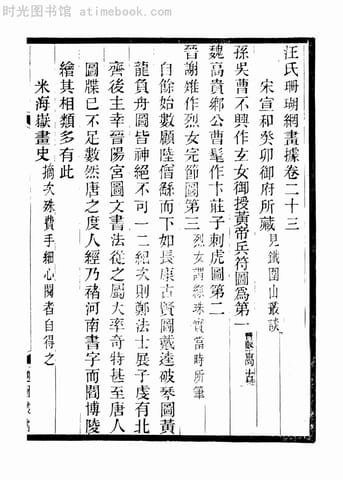 时光图书馆 atimebook.com
汪氏珊瑚網畫據卷二十三
宋宣和癸卯御府所藏 見鐵圍山叢談
孫吳曹不興作玄女御授黃帝兵符圖爲第一
魏高貴鄉公曹髦作卞莊子刺虎圖第二
晉謝雉作烈女完節圖第三
自餘始數顧陸僧繇而下如長康古賢圖戴逵破琴圖黃
龍負舟圖皆神絕不可一二紀次則鄭法士展子虔有北
齊後主幸晉陽宮圖文書法從之屬大率奇特甚至唐人
圖牒已不足數然唐之度人經乃褚河南書字而閻博陵
繪其相類多有此
米海嶽畫史 摘次殊費手細心閱者自得之